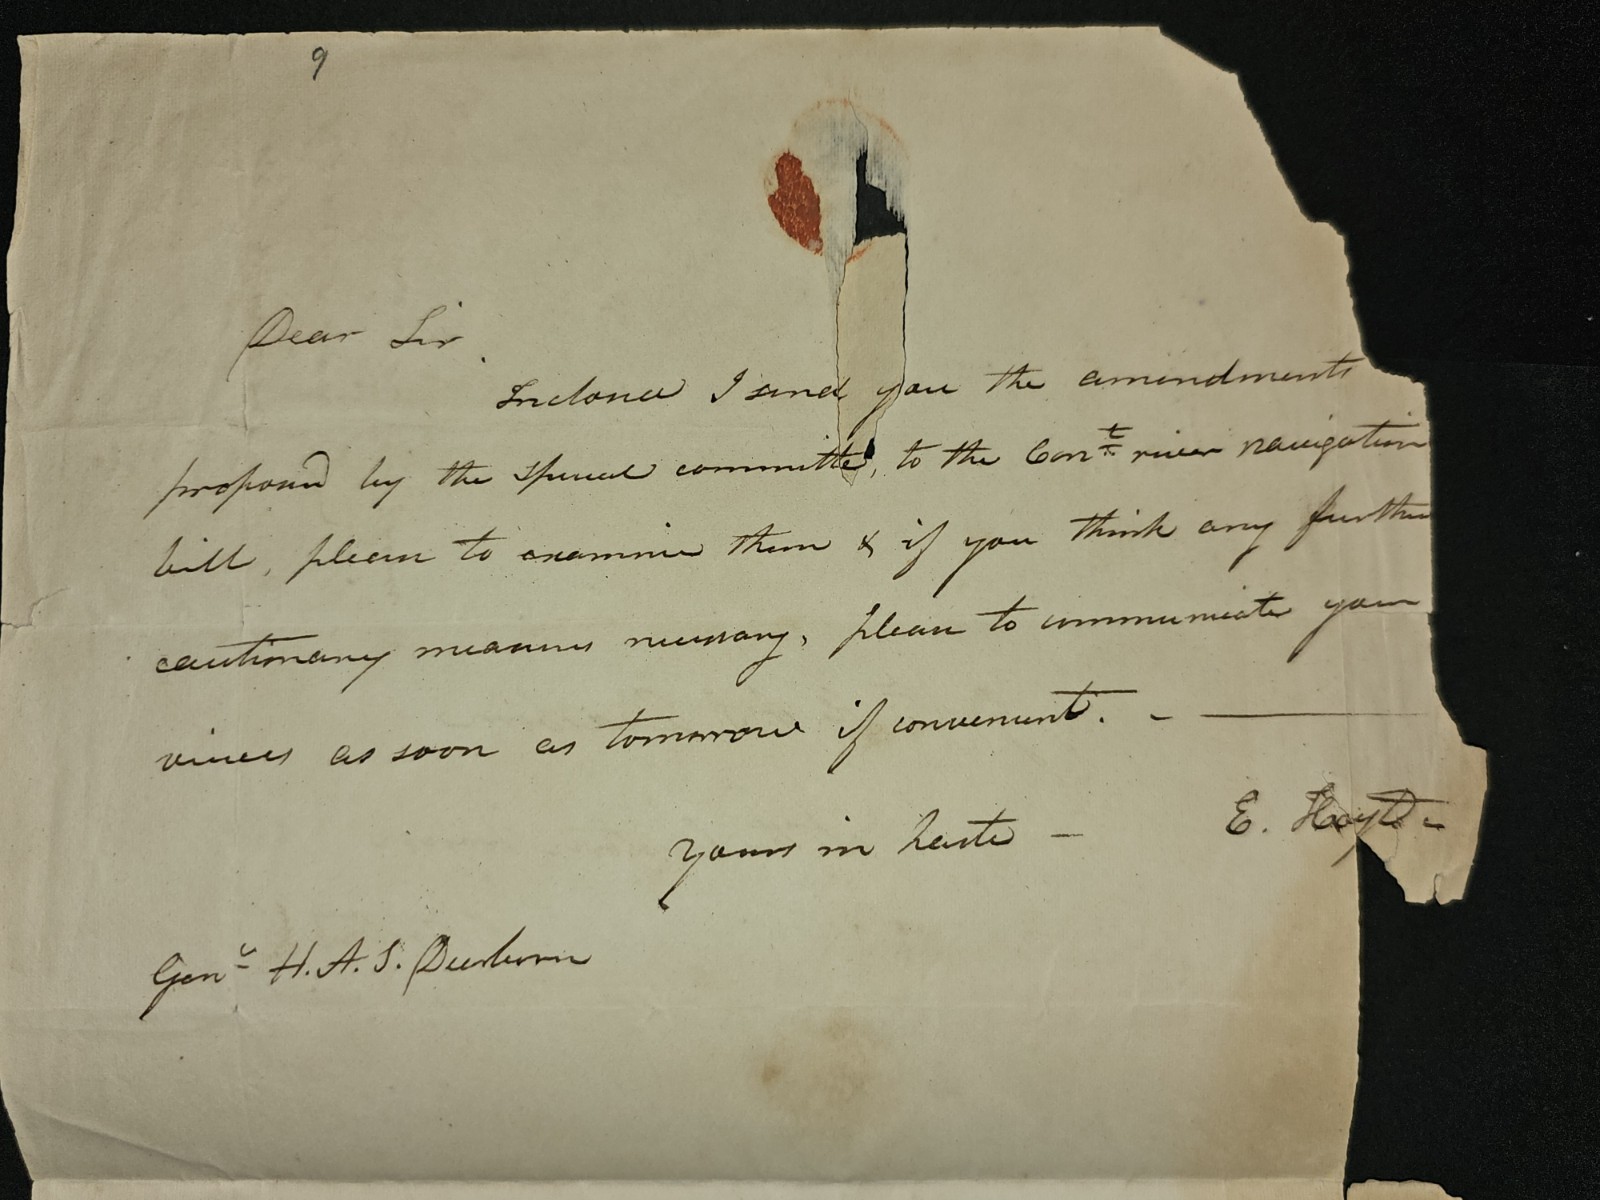 9
Dear Sir.
Inclosed I send you the amendments
proposed by the special committe, to the Cont river navigation
bill, please to examine them & if you think any further
cautionary measures necessary, please to communicate your
views as soon as tomorrow if convenient. -
Yours in haste - E. Hoyt -
Genl H. A. S. Dearborn